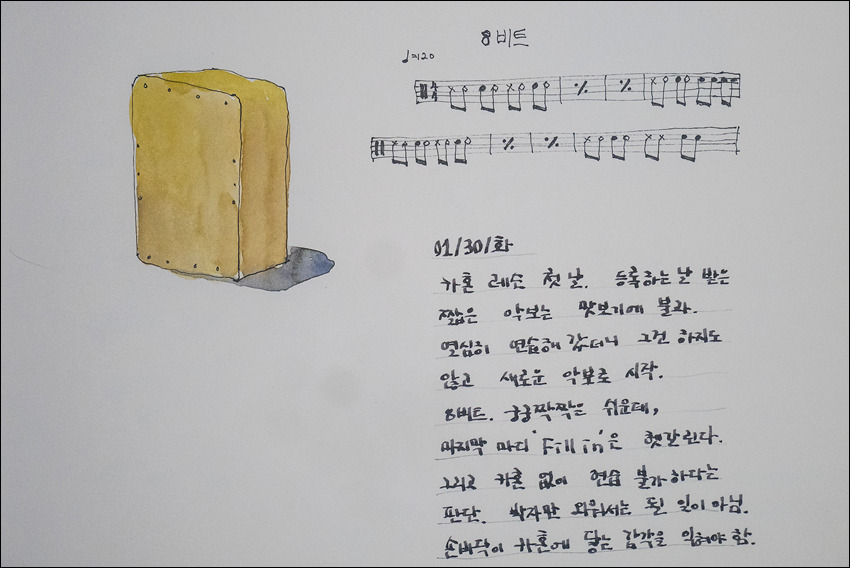 8비트
♩=120
01/30/화
카혼 레슨 첫날. 등록하는 날 받은
짧은 악보는 맛보기에 불과.
열심히 연습해 갔더니 그건 하지도
않고 새로운 악보로 시작.
8비트. 쿵쿵짝짝은 쉬운데,
마지막 마디 'Fill in'은 헷갈린다.
그리고 카혼 없이 연습 불가하다는
판단. 박자만 외워서는 될 일이 아님.
손바닥이 카혼에 닿는 감각을 익혀야 함.